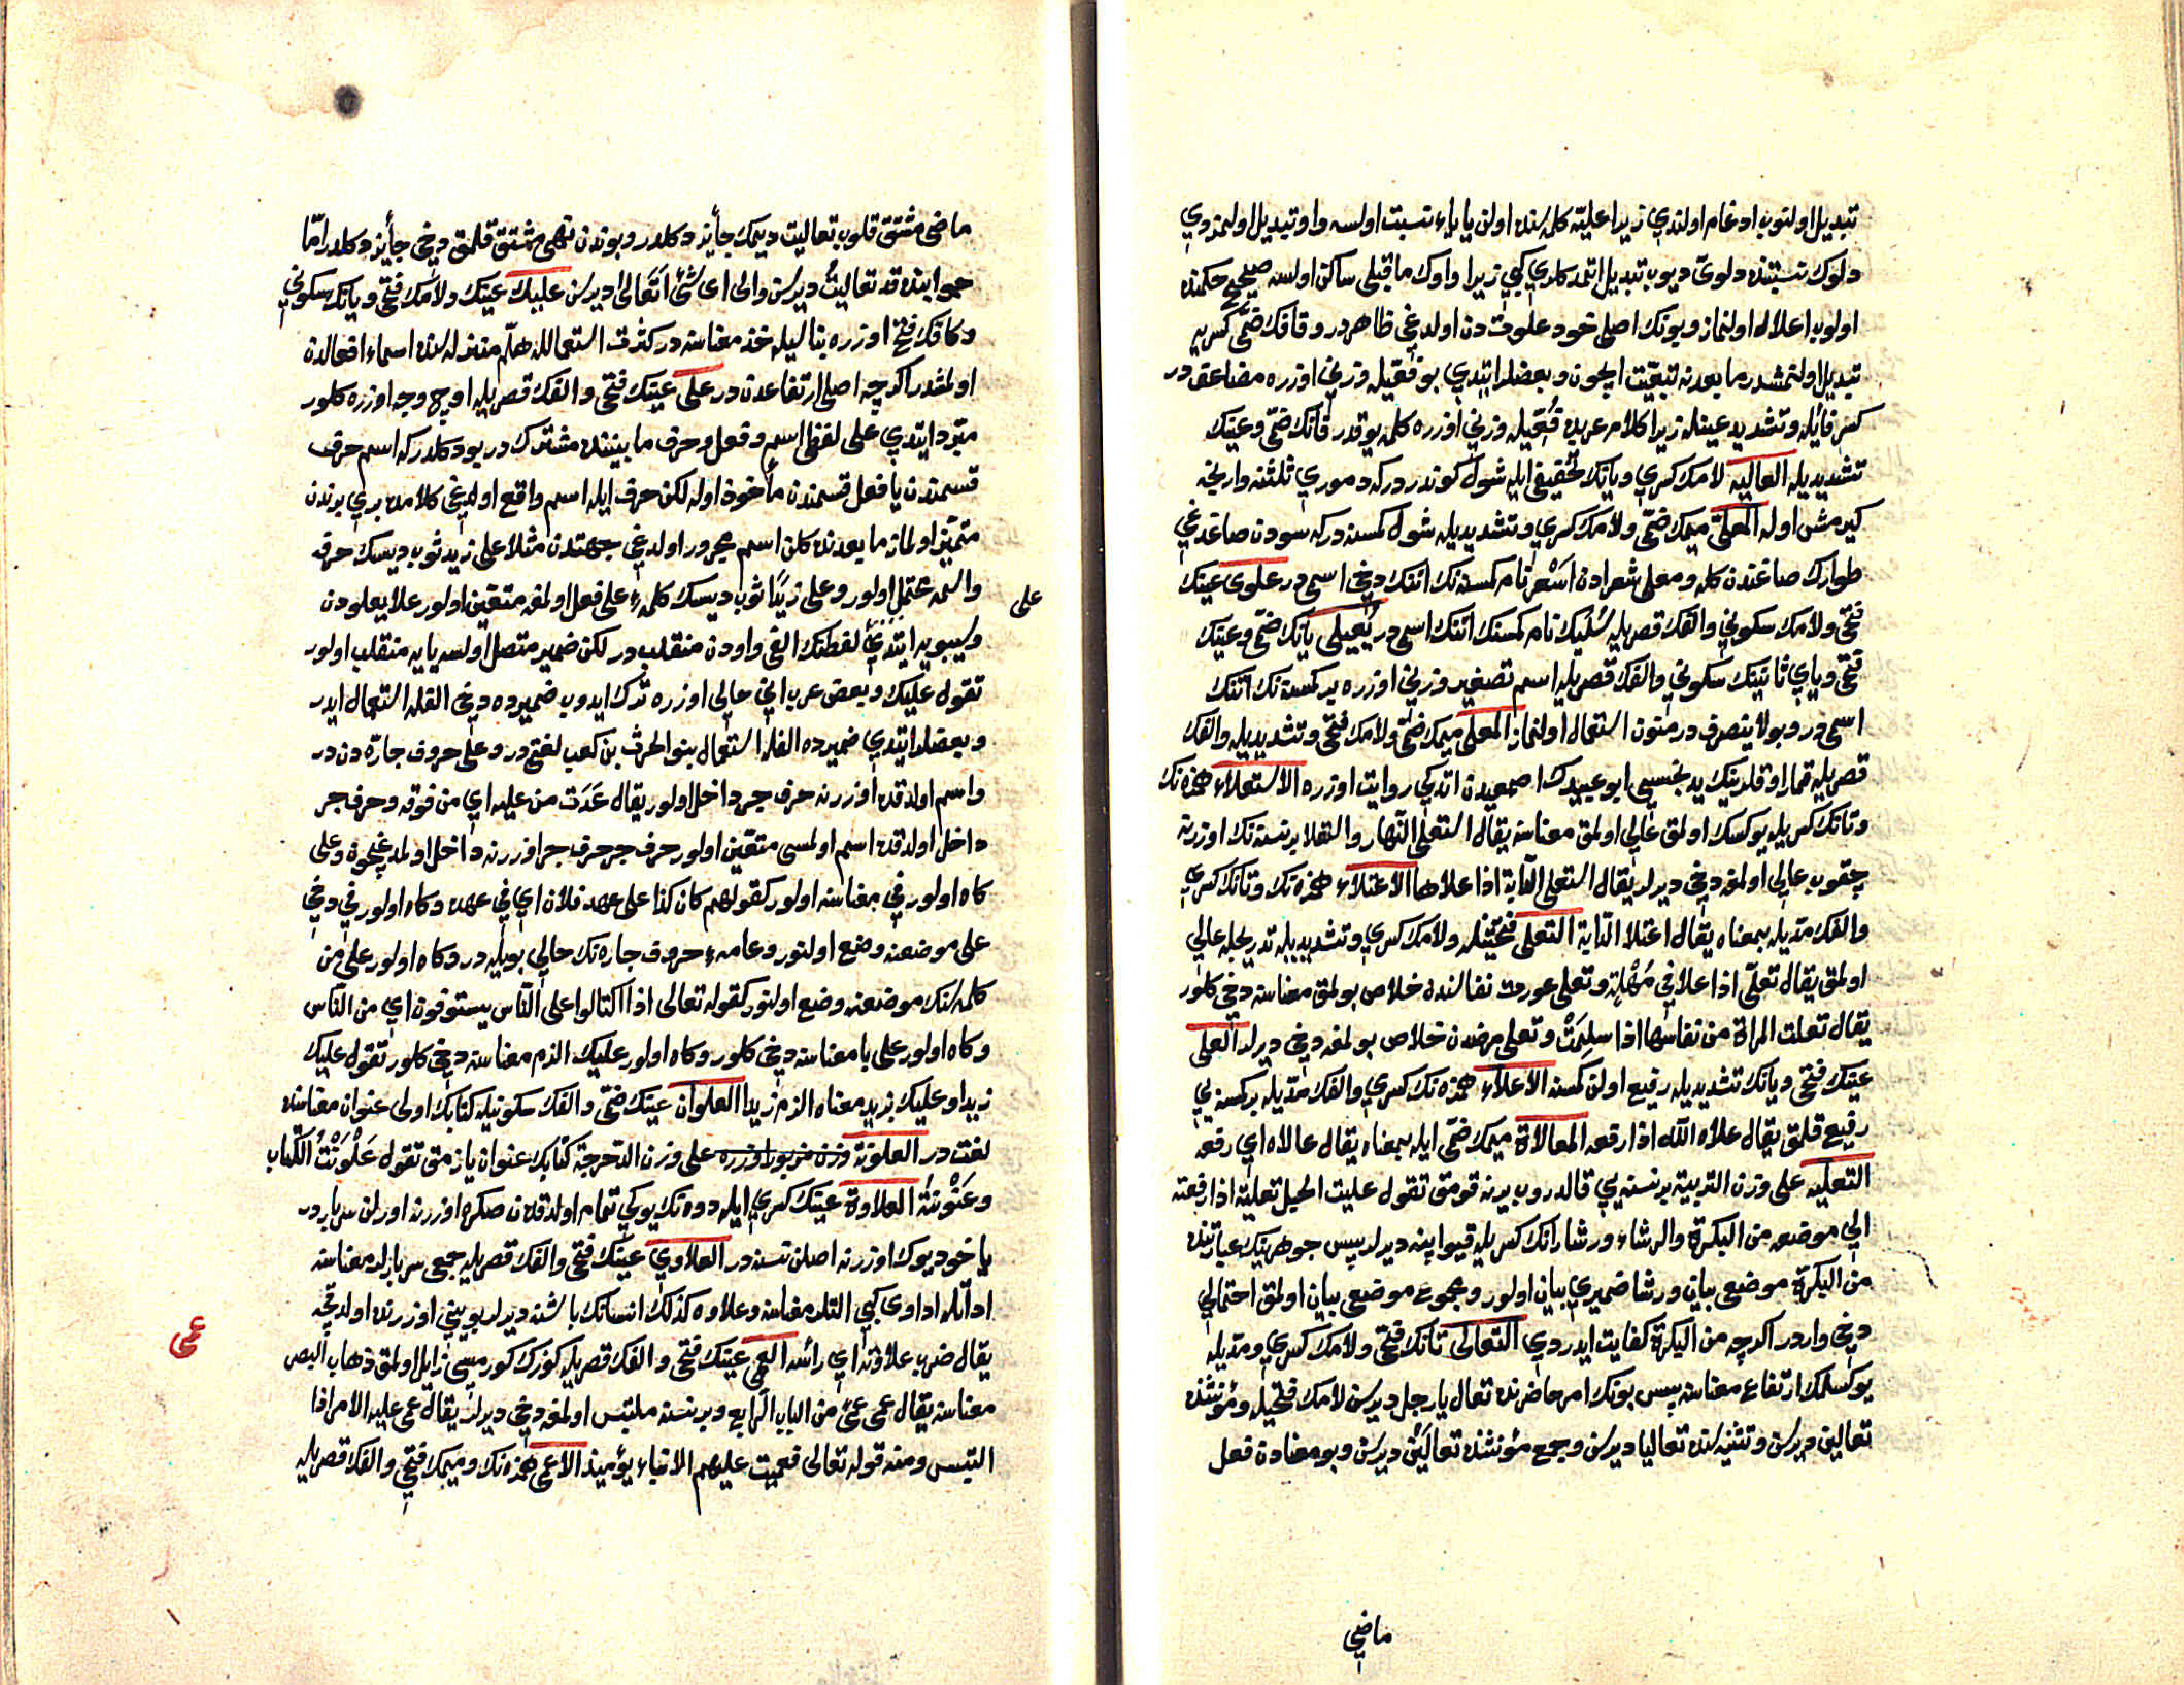 تبديل اولنوب ادغام اولندي زيرا عليّه كلمه‌سنده اولن ياياء نسبت اولسه واو تبديل اولنمزدي
دلوك نسبتنده دلويّ ديوب تبديل اتمدكلري كبي زيرا واوك ماقبلى ساكن اولسه صحيح حكمنده
اولوب اعلال اولنماز وبونك اصلى خود علوت دن اولدغى ظاهردر وقافك ضمّى كسريه
تبديل اولنمشدر مابعدنه تبعيّت ايچون وبعضلر ايتدي بو فعّيله وزني اوزره مضاعفدر
كسر فائله وتشديد عينله زيرا كلام عربده فُعّيله وزني اوزره كلمه يوقدر فانك ضمّى وعينك
تشديديله العاليه لامك كسري ويانك تخفيفى ايله شول كوندر دركه دموري ثلثنه وارنجه
كيرمش اوله المعلّى ميمك ضمّى ولامك كسري وتشديديله شول كمسنه دركه سودن صاغدغي
طوارك صاغندن كله ومعلى شعرادن اشعر نام كمسنه نك اتنك دخى اسمى در علوى عينك
فتحى ولامك سكوني والفك قصريله سُليك نام كمسنك اتنك اسمى در يُعيلى يانك ضمّى وعينك
فتحى وياي ثانينك سكوني والفك قصريله اسم تصغير وزني اوزره بر كمسنه نك اتنك
اسمى در وبو لاينصرف در منون استعمال اولنماز المعلى ميمك ضمّى ولامك فتحى وتشديديله والفك
قصريله قمار اوقلرينك يدنجسيى ابو عبيدك اصمعيدن اتدكي روايت اوزره الاستعلاء همزه نك
وتانك كسريله يوكسك اولمق عالي اولمق معناسنه يقال استعلى النّهار والتعلا بر نسنه نك اوزرنه
چقوب عالي اولمغه دخى ديرلر يقال استعلى الدابة اذا علاها الاعتلاء همزه نك وتانك كسري
والفك مدّيله بمعناه يقال اعتلا الدّابة التعلى فتحتينله ولامك كسري وتشديديله تدريجله عالي
اولمق يقال تعلّى اذا علا في مُهْلةٍ وتعلى عورت نفاسندن خلاص بولمق معناسنه دخى كلور
يقال تعلت المراة من نفاسها اذا سلِمَتْ وتعلى مرضدن خلاص بولمغه دخى ديرلر العلى
عينك فتحى ويانك تشديديله رفيع اولن كمسنه الاعلاء همزه نك كسري والفك مدّيله بر كمسنه يي
رفيع قلمق يقال علاه الله اذا رفعه المعالاة ميمك ضمّى ايله بمعناه يقال عالاه اي رفعه
التعليه على وزن التربية بر نسنه يي قالدروب يرنه قومق تقول عليت الحبل تعلية اذا رفعته
الي موضعه من البكرة والرشاء ورشا رانك كسريله قيو ايپنه ديرلر پس جوهرينك عبارتنده
من البكرة موضعى بيان ورشا ضميري بيان اولور ومجموعى موضعى بيان اولمق احتمالي
دخى واردر اكرچه من البكرة كفايت ايدردي التعالى تانك فتحى ولامك كسري ومدّيله
يوكسلمك ارتفاع معناسنه پس بونك امر حاضرنده تعال يا رجل ديرسن لامك فتحيله ومؤنثنده
تعالين ديرسن وتثنيه سنده تعاليا ديرسن وجمع مؤنثنده تعالَيْن ديرسن وبو معنادن فعل
ماضى
ماضى مشتق قلوب تعاليت ديمك جائز دكلدر وبوندن نهى مشتق قلمق دخى جائز دكلدر امّا
جوابنده قد تعاليتُ ديرسن والى اى شئ اَتَعالى ديرسن عليك عينك ولامك فتحى ويانك سكوني
وكافك فتح اوزره بناسيله خذ معناسنه در كثرت استعماللە هلمّ منزله‌سنده اسماء افعالدن
اولمشدر اكرچه اصلى ارتفاعدن در على عينك فتحى والفك قصريله اوچ وجه اوزره كلور
مبرّد ايتدي على لفظى اسم وفعل وحرف مابيننده مشتركدر بو دكلدركه اسم حرف
قسمندن يا فعل قسمندن مأخوذ اوله لكن حرف ايله اسم واقع اولدغى كلامده بري برندن
متميّز اولماز مابعدنده كلن اسم مجرور اولدغي جهتدن مثلا على زيدٍ ثوب ديسك حرف
واسمه محتمل اولور وعلى زيدًا ثوب ديسك كلمهء على فعل اولمغه متعيّن اولور علا يعلودن
على
وسيبويه ايتدي لفظنك الفى واودن منقلبدر لكن ضمير متصل اولسه يايه منقلب اولور
تقول عليك وبعض عرب اني حالى اوزره ترك ايدوب ضميرده دخى الفله استعمال ايدر
وبعضلر ايتدي ضميرده الفله استعمال بنو الحرث بن كعب لغتى در وعلى حروف جارّه دن در
واسم اولدقده اوزرنه حرف جر داخل اولور يقال غَدَت من عليه اي من فوقه وحرف جر
داخل اولدقده اسم اولمسى متعيّن اولور حرف جر حرف جر اوزرنه داخل اولمدغيچون وعلى
كاه اولور في معناسنه اولور كقولهم كان كذا على عهد فلان اي في عهده وكاه اولور في دخى
على موضعنه وضع اولنور وعامهء حروف جاره نك حالي بويله در وكاه اولور على من
كلمه‌سنك موضعنه وضع اولنور كقوله تعالى اذا اكتالوا على النّاس يستوفون اي من النّاس
وكاه اولور على با معناسنه دخى كلور وكاه اولور عليك الزم معناسنه دخى كلور تقول عليك
زيدا وعليك بزيد معناه الزم زيدا العلوان عينك ضمّى والفك سكونيله كتابك اولى عنوان معناسنده
لغتدر العلونة على وزن الدّحرجة كتابك عنوان يازمق تقول عَلْوَنْتُ الكتاب
وعَنْوَنْتهُ العلاوة عينك كسري ايله دوه نك يوكي تمام اولدقدن صكره اوزرنه اورلن سربار در
ياخود يوك اوزرنه اصلن نسنه در العلاوي عينك فتحى والفك قصريله جمعى سربارلر معناسنه
اداوله اداوى كبي التلر معناسنه وعلاوه كذلك انسانك باشنه ديرلر بوينى اوزرنده اولدقچه
يقال ضرب علاوته اي رأسه العمى عينك فتحى والفك قصريله كوزك كورميسى زايل اولمق ذهاب البصر
عمى
معناسنه يقال عمى عمىً من الباب الرابع وبر نسنه ملتبس اولمغه دخى ديرلر يقال عمى عليه الامر اذا
التبس ومنه قوله تعالى فعميت عليهم الانباء يؤميذ الاعمى همزه نك وميمك فتحى والفك قصريله